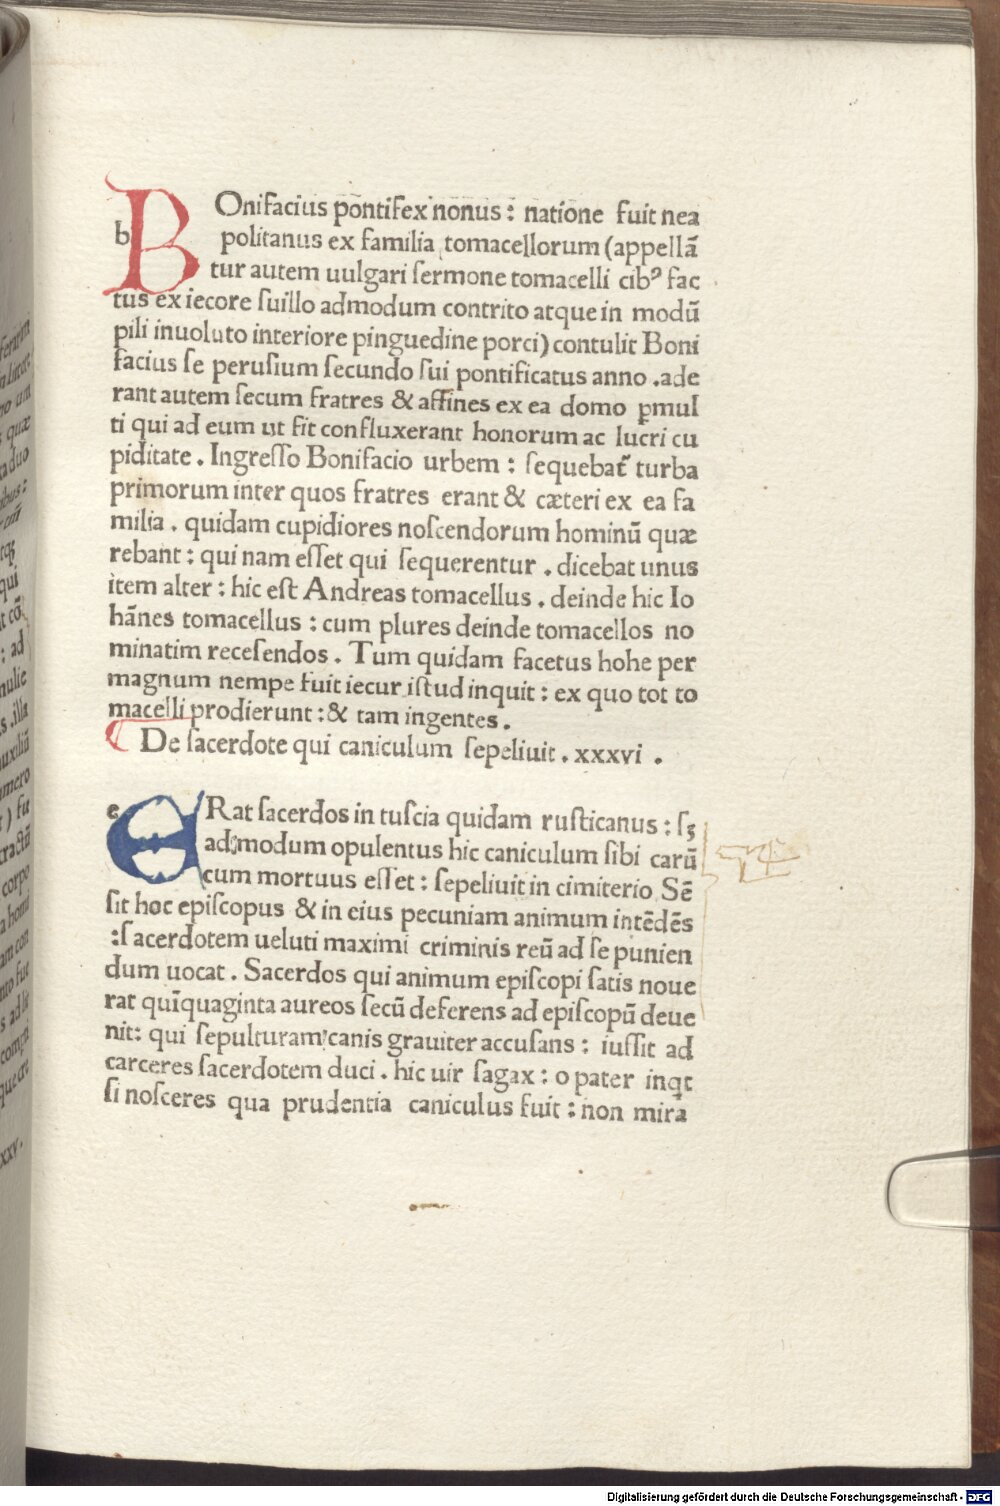 BOnifacius põntifex nonus : natione fuit nea
politanus ex familia tomacellorum (appellã
tur autem uulgari ſermone tomacelli cibꝰ fac
tus ex iecore ſuillo admodum contrito atque in modũ
pili inuoluto interiore pinguedine porci) contulit Boni
facius ſe peruſium ſecundo ſui pontificatus anno . ade
rant autem ſecum fratres & affines ex ea domo ꝑmul
ti qui ad eum ut fit confluxerant honorum ac lucri cu
piditate . Ingreſſo Bonifacio urbem : ſequebat᷑ turba
primorum inter quos fratres erant & cæteri ex ea fa
milia . quidam cupidiores noſcendorum hominũ quæ
rebant : qui nam eſſet qui ſequerentur . dicebat unus
item alter : hic eſt Andreas tomacellus . deinde hic Io
hãnes tomacellus : cum plures deinde tomacellos no
minatim receſendos . Tum quidam facetus hohe per
magnum nempe fuit iecur iſtud inquit : ex quo tot to
macelli prodierunt : & tam ingentes .
De ſacerdote qui caniculum ſepeliuit . xxxvi .
ERat ſacerdos in tuſcia quidam ruſticanus : ſꝫ
admodum opulentus hic caniculum ſibi carũ
cum mortuus eſſet : ſepeliuit in cimiterio Sẽ
ſit hoc epiſcopus & in eius pecuniam animum intẽdẽs
: ſacerdotem ueluti maximi criminis reũ ad ſe punien
dum uocat . Sacerdos qui animum epiſcopi ſatis noue
rat quĩquaginta aureos ſecũ deferens ad epiſcopũ deue
nit: qui ſepulturam canis grauiter accuſans : iuſſit ad
carceres ſacerdotem duci . hic uir ſagax : o pater inqt
ſi noſceres qua prudentia caniculus fuit : non mira
Digitalisierung gefördert durch die Deutsche Forschungsgemeinschaft - DFG